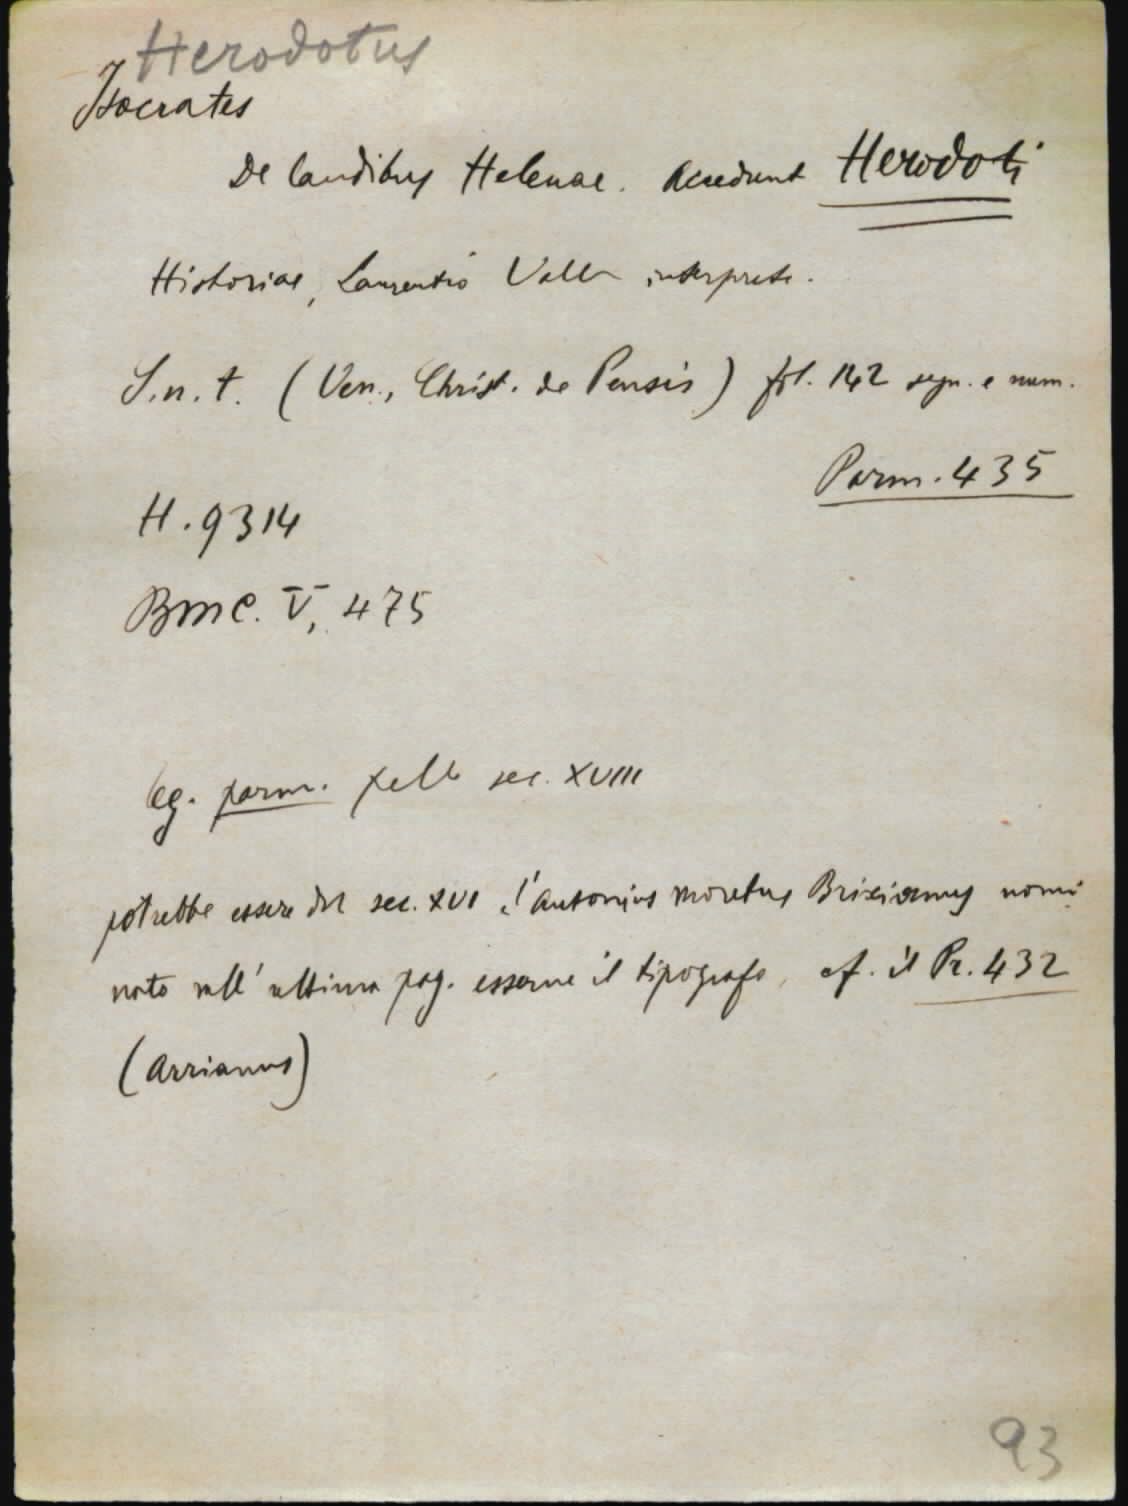 Herodotus
Isocrates
De laudibus Helenae. Accedunt Herodoti
Historiae, Laurentio Valla interprete.
S.n.t. (Ven., Christ. de Pensis) fol. 142 segn. e num.
Parm. 435
H. 9314
BMC. V, 475
leg. parm. pelle sec. XVIII
potrebbe essere del sec. XVI e l'Antonius Moretus Brixianus nomi
nato nell'ultima pag. esserne il tipografo, cf. il Pr. 432
(Arrianus)
93